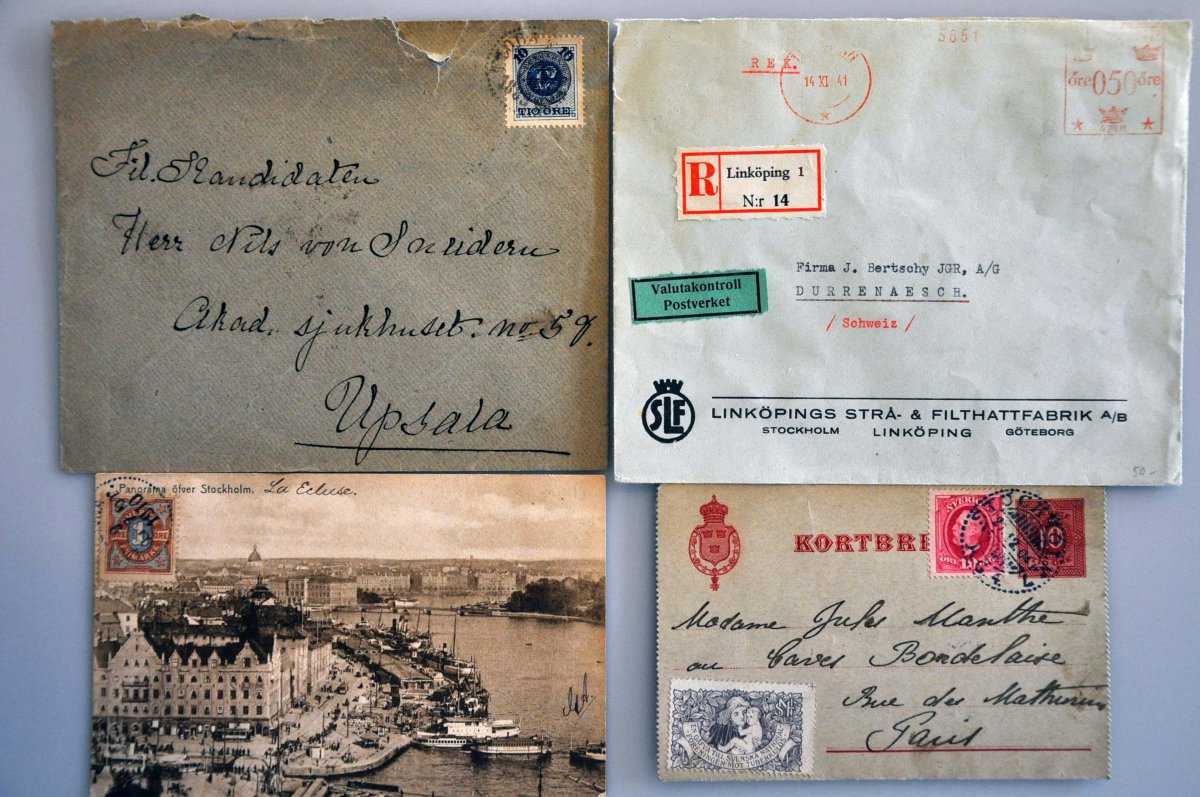 10 10
TIO ÖRE
Fil. Kandidaten
Herr Nils von Sneidern
Akad. sjukhuset. no 59.
Upsala
5851
REK.
14 XI 41
öre 050 öre
Linköping 1
R
N:r 14
Valutakontroll
Postverket
Firma J. Bertschy JGR, A/G
DURRENAESCH.
/ Schweiz /
SLF
LINKÖPINGS STRÅ- & FILTHATTFABRIK A/B
STOCKHOLM LINKÖPING GÖTEBORG
50-
Panorama öfver Stockholm. La Ecluse.
KORTBRE
SVERIGE
10
Madame Jules Manthe
au Caves Bordelaise
Rue des Mathurins
Paris